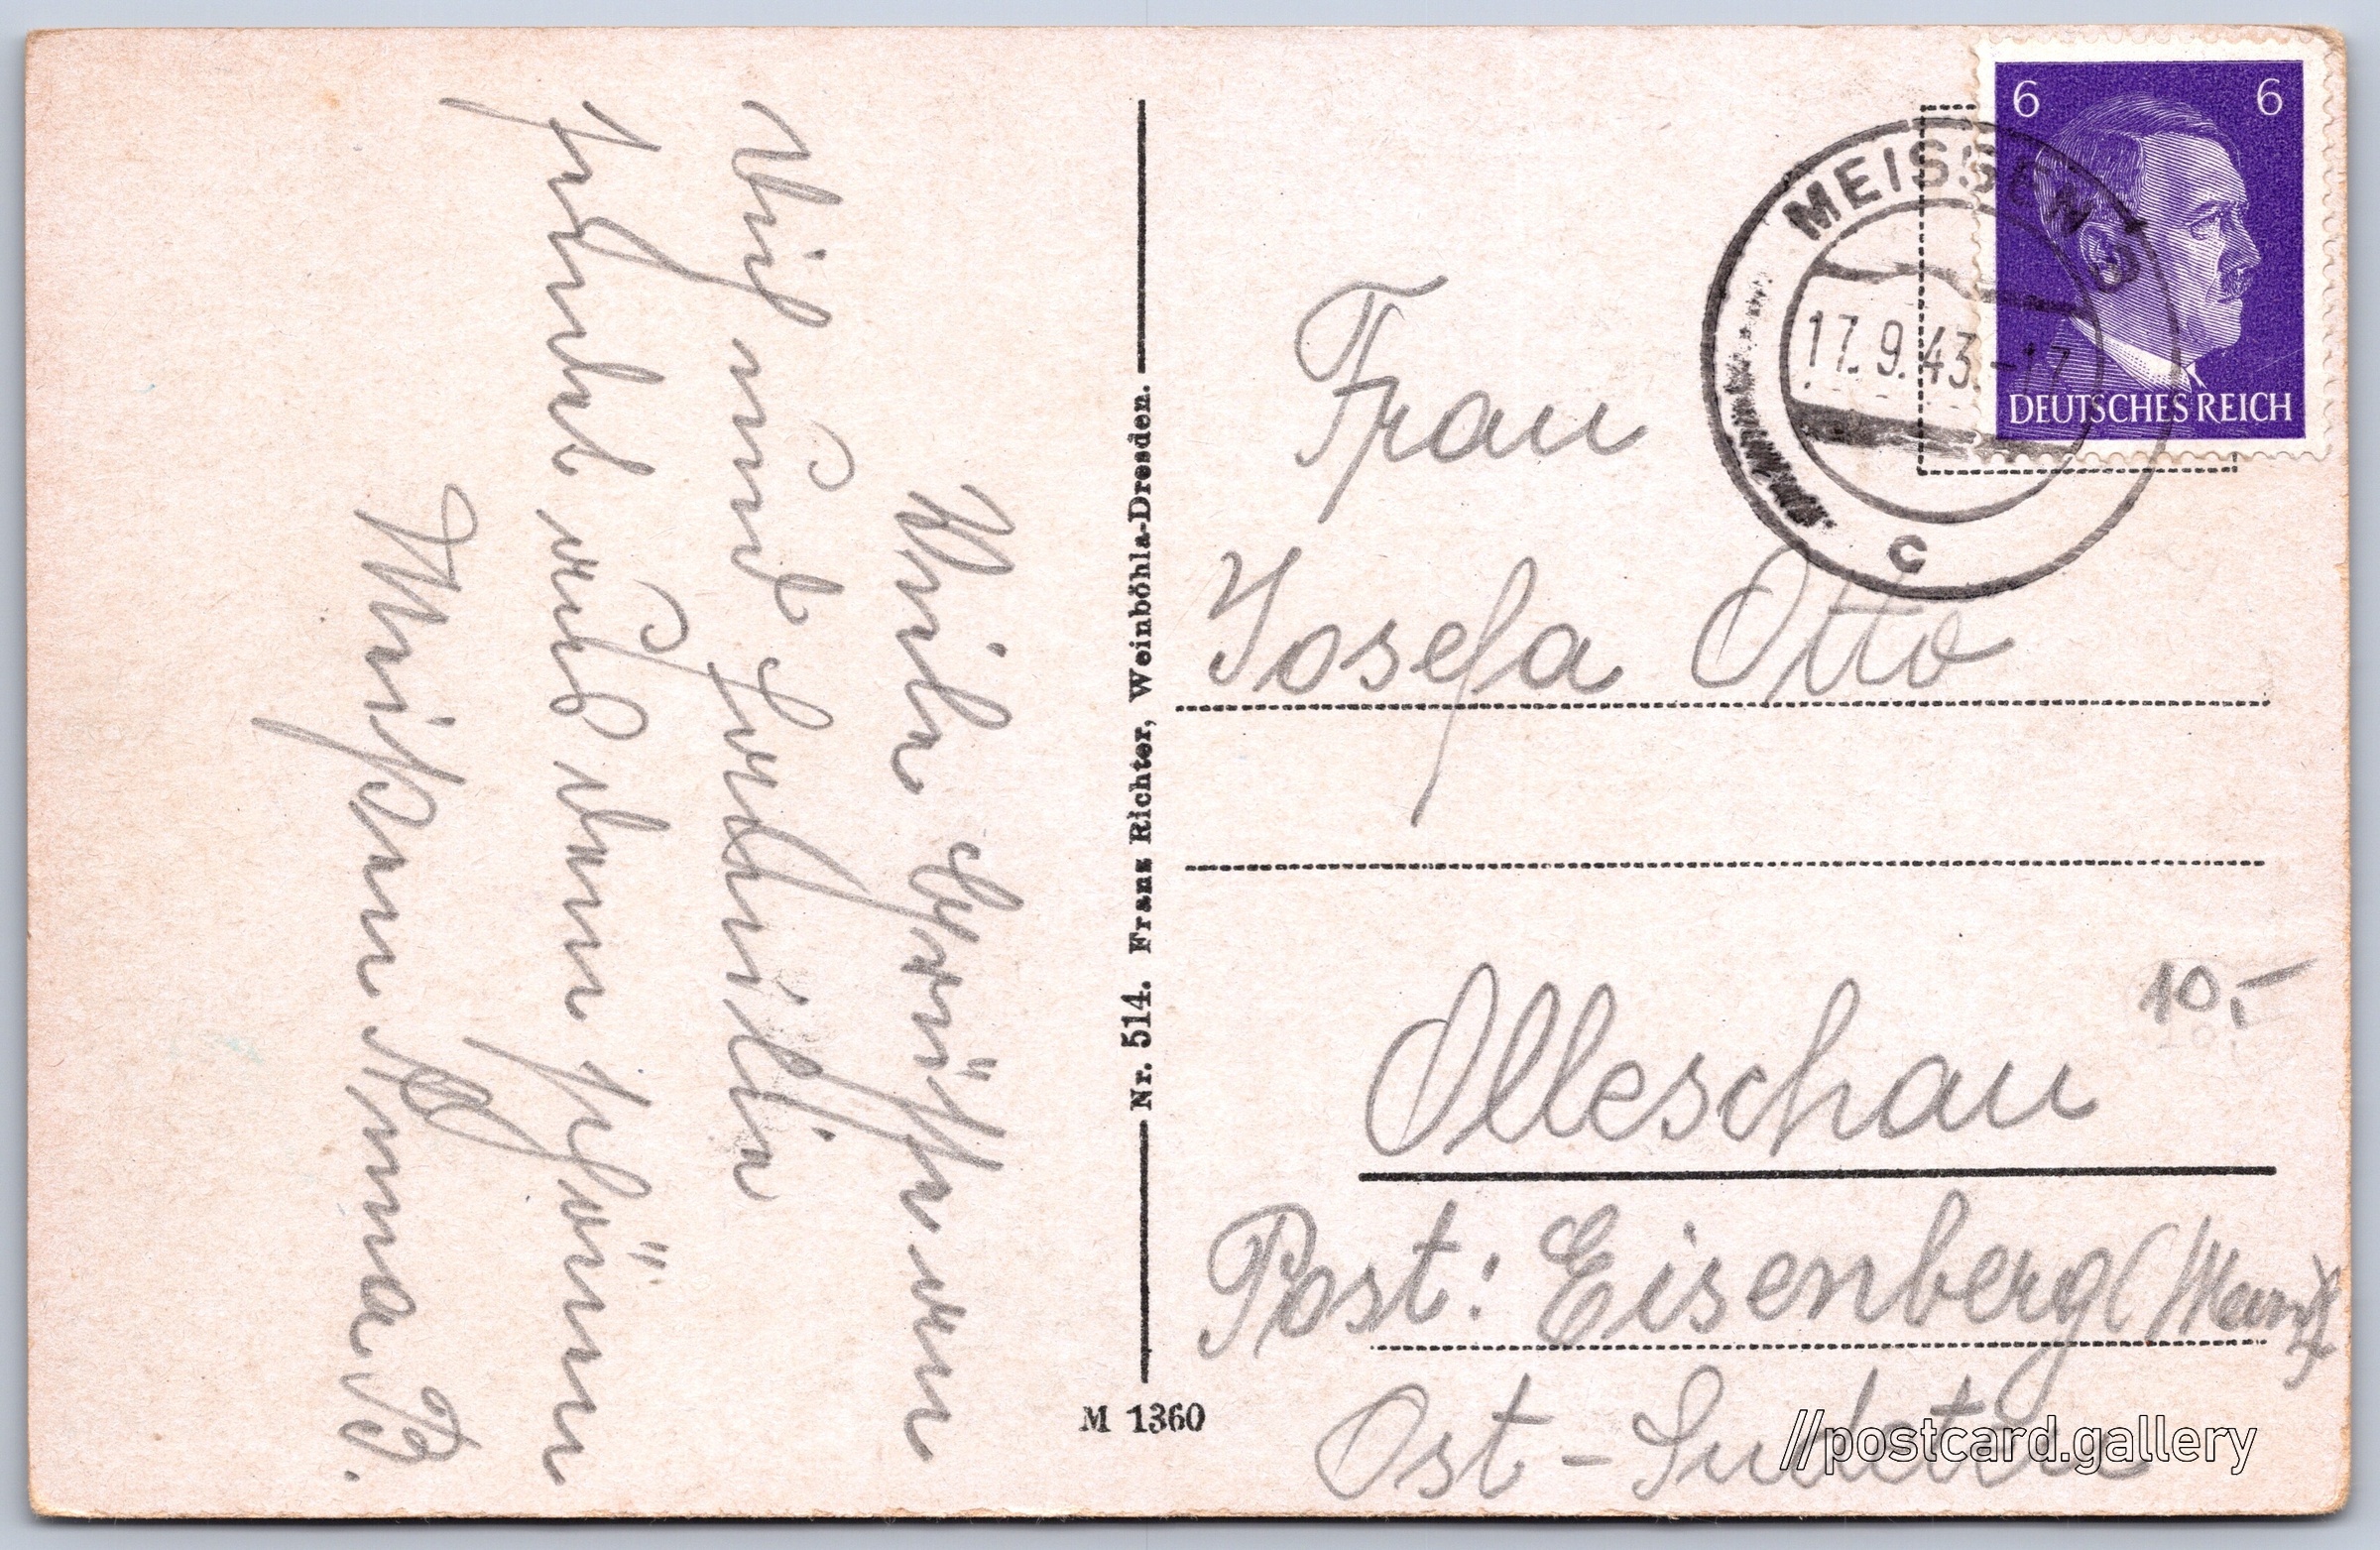 Viele Grüsse an
Dich und Familie
sendet aus dem schönen
Meißen Anna B.
Nr. 514. Franz Richter, Weinböhla-Dresden.
M 1360
6 6
DEUTSCHES REICH
MEISSEN 3
17.9.43.-17
c
Frau
Josefa Otto
10,-
Olleschau
Post: Eisenberg (March)
Ost-Sudeten
//postcard.gallery